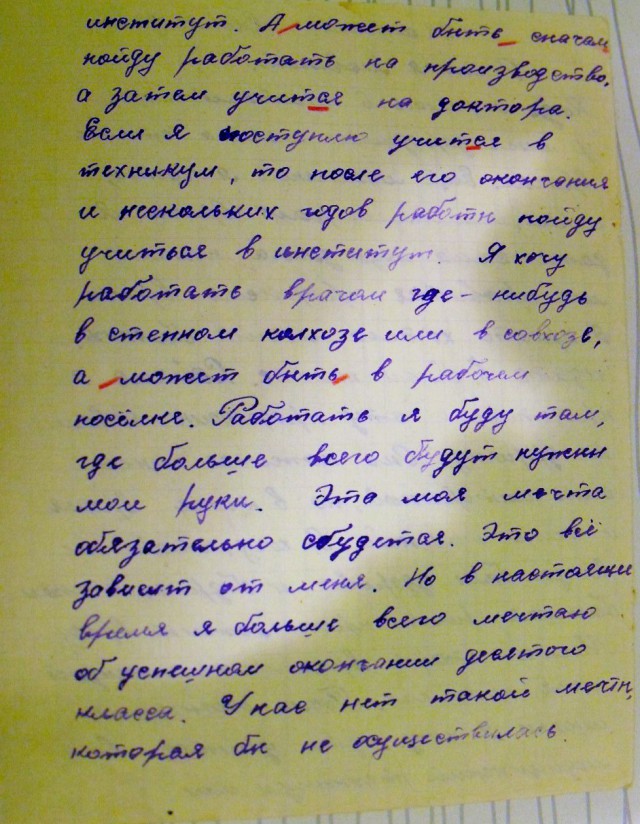 институт. А может быть сначала
пойду работать на производство,
а затем учится на доктора.
Если я поступлю учится в
техникум, то после его окончания
и нескольких годов работы пойду
учиться в институт. Я хочу
работать врачом где-нибудь
в степном колхозе или в совхозе,
а может быть в рабочем
посёлке. Работать я буду там,
где больше всего будут нужны
мои руки. Эта моя мечта
обязательно сбудется. Это всё
зависит от меня. Но в настоящее
время я больше всего мечтаю
об успешном окончании десятого
класса. У нас нет такой мечты,
которая бы не осуществилась.